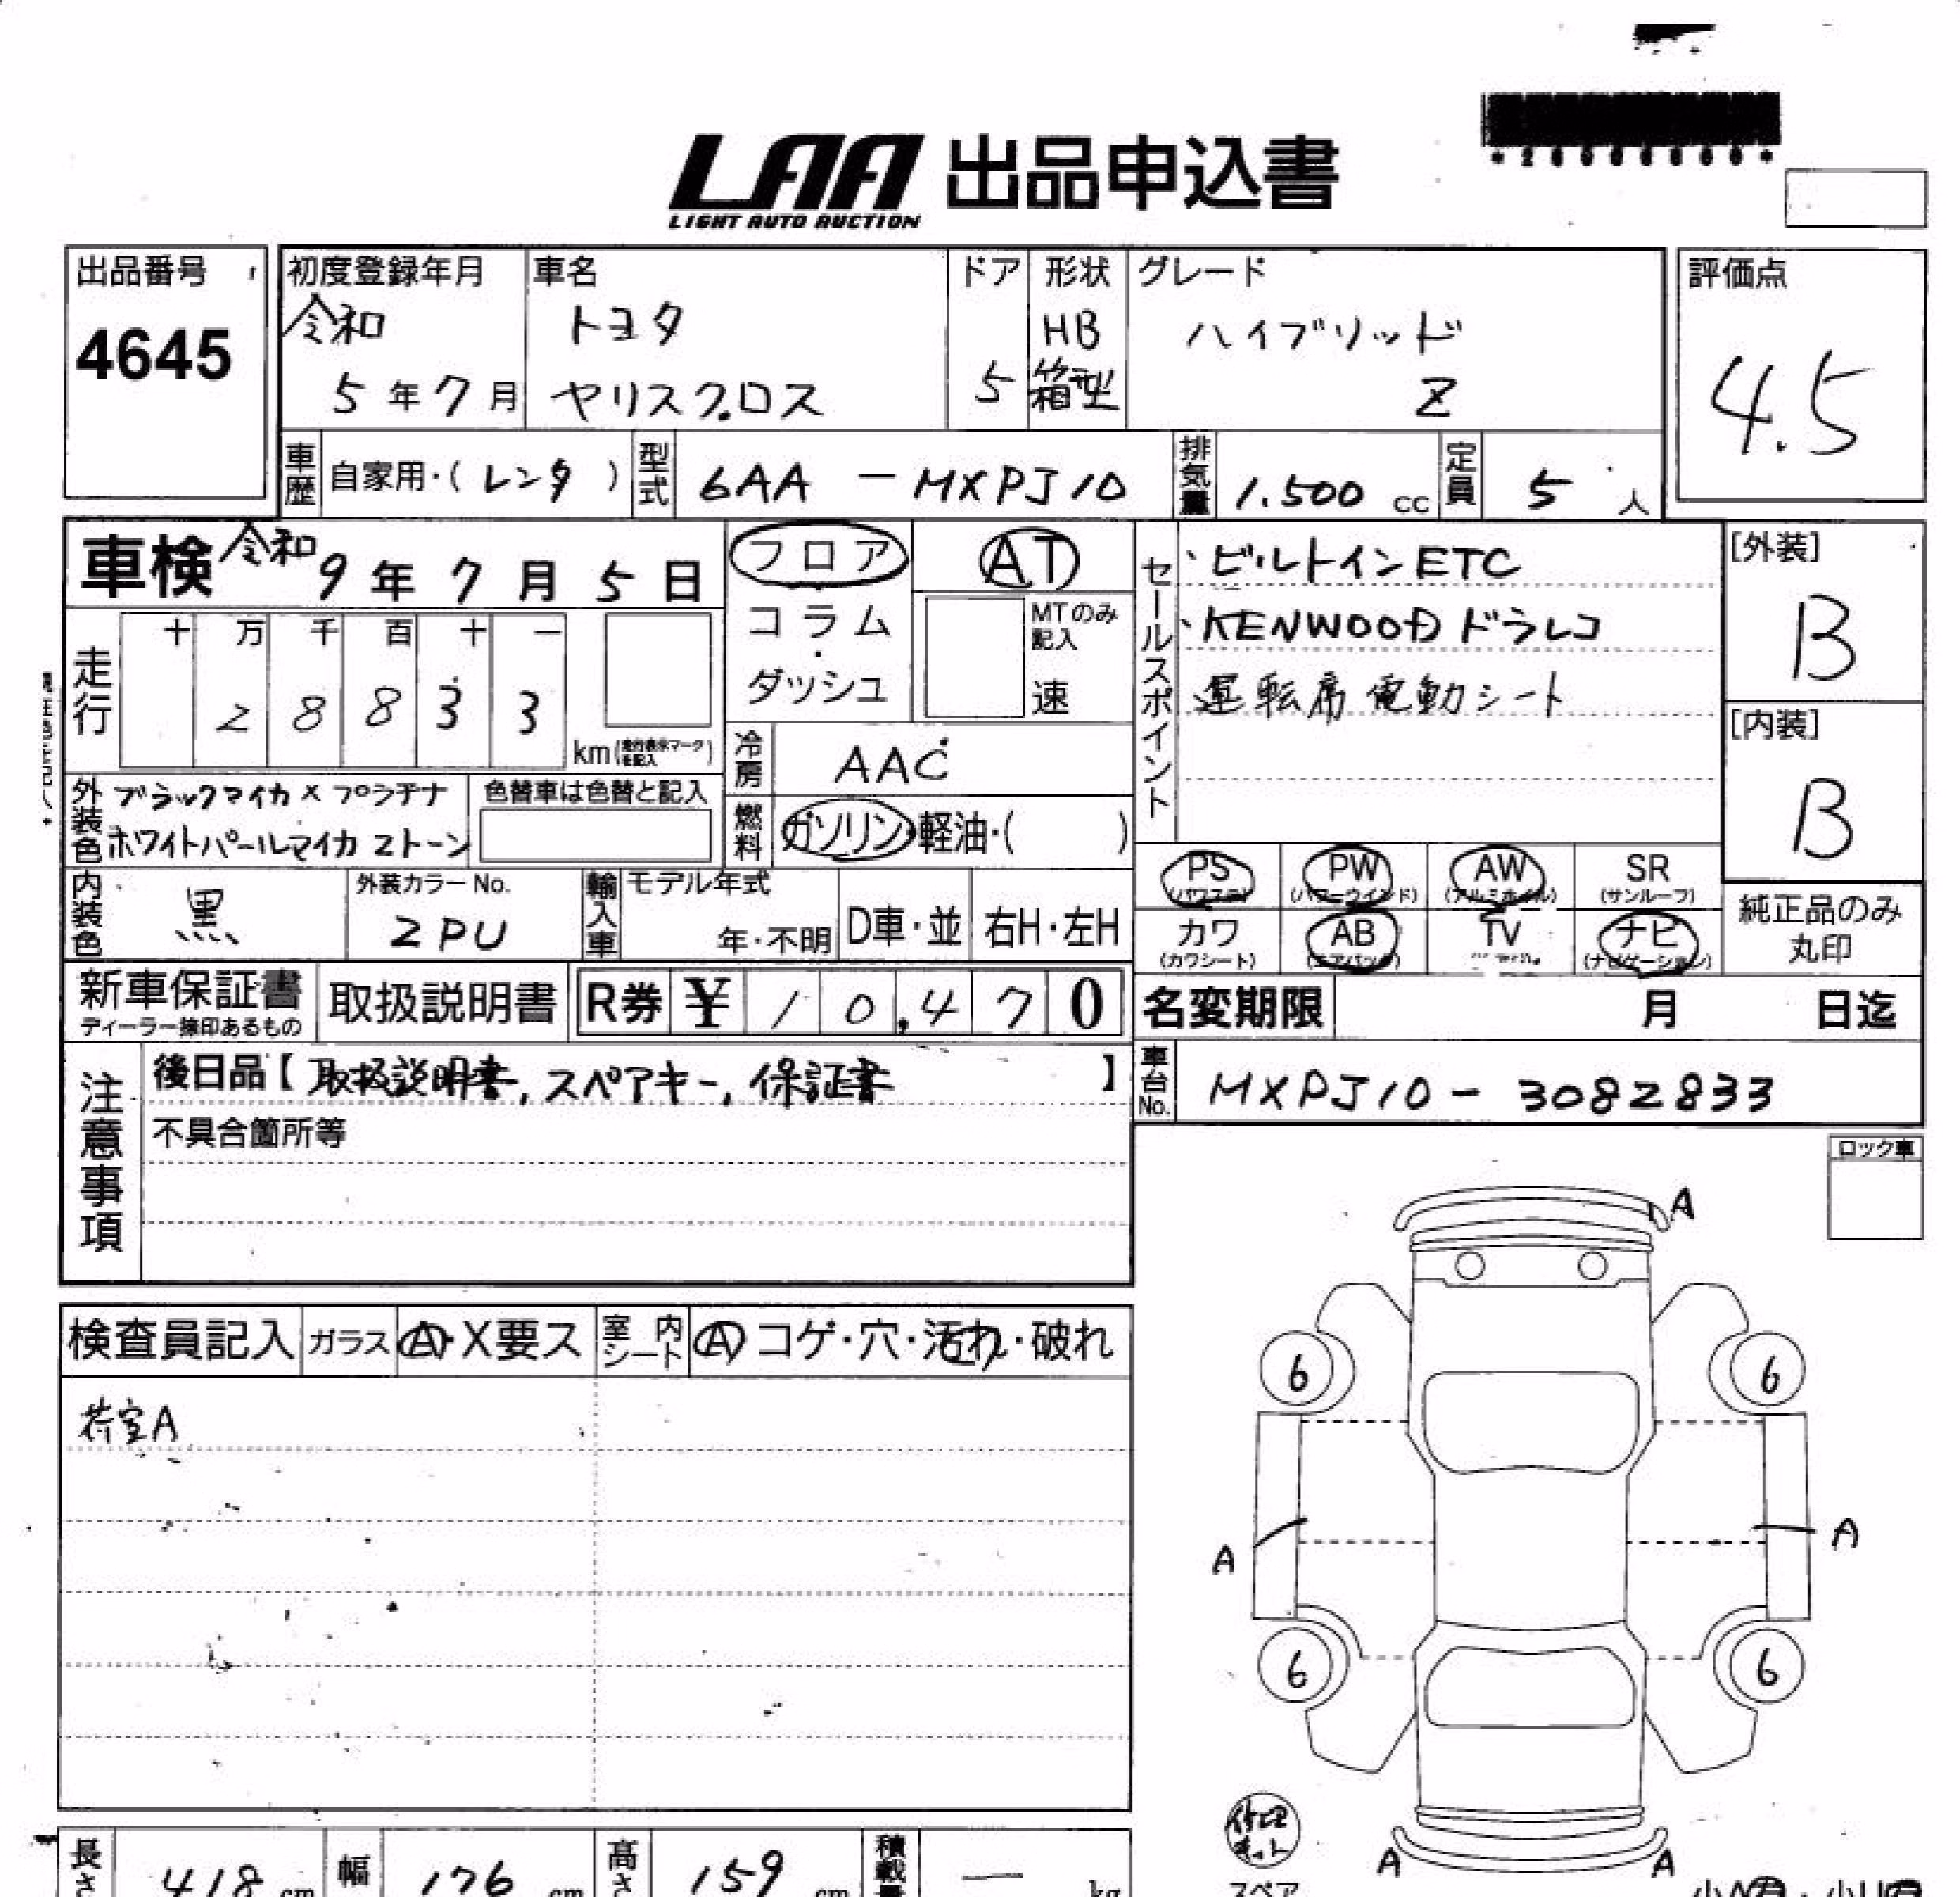 LAA 出品申込書
LIGHT AUTO AUCTION
出品番号
4645
初度登録年月
令和
5年7月
車名
トヨタ
ヤリスクロス
ドア
5
形状
HB
箱型
グレード
ハイブリッド
Z
評価点
4.5
車歴 自家用・(レンタ)
型式 6AA-MXPJ10
排気量 1.500 cc
定員 5人
車検 令和9年7月5日
走行
十 万 千 百 十 一
2 8 8 3 3
km(走行表示マークを記入)
フロア
コラム
ダッシュ
AT
MTのみ
記入
速
セールスポイント
・ビルトインETC
・KENWOODドラレコ
運転席電動シート
[外装]
B
[内装]
B
冷房 AAC
燃料 ガソリン・軽油・( )
外装色 ブラックマイカ×プラチナ
ホワイトパールマイカ2トーン
色替車は色替と記入
内装色 黒
外装カラーNo.
2PU
輸入車
モデル年式
年・不明
D車・並
右H・左H
PS
(パワステ)
PW
(パワーウインド)
AW
(アルミホイル)
SR
(サンルーフ)
カワ
(カワシート)
AB
(エアバック)
TV
ナビ
(ナビゲーション)
純正品のみ
丸印
新車保証書
ディーラー捺印あるもの
取扱説明書
R券 ¥ 10,470
名変期限 月 日迄
注意事項
後日品【取扱説明書,スペアキー,保証書】
不具合箇所等
車台No. MXPJ10-3082833
ロック車
検査員記入
ガラス A・X要ス
室内シート A コゲ・穴・汚れ・破れ
荷室A
A
6 6
A A
6 6
A A
修理
キット
スペア
長さ 418 cm
幅 176 cm
高さ 159 cm
積載量 — kg